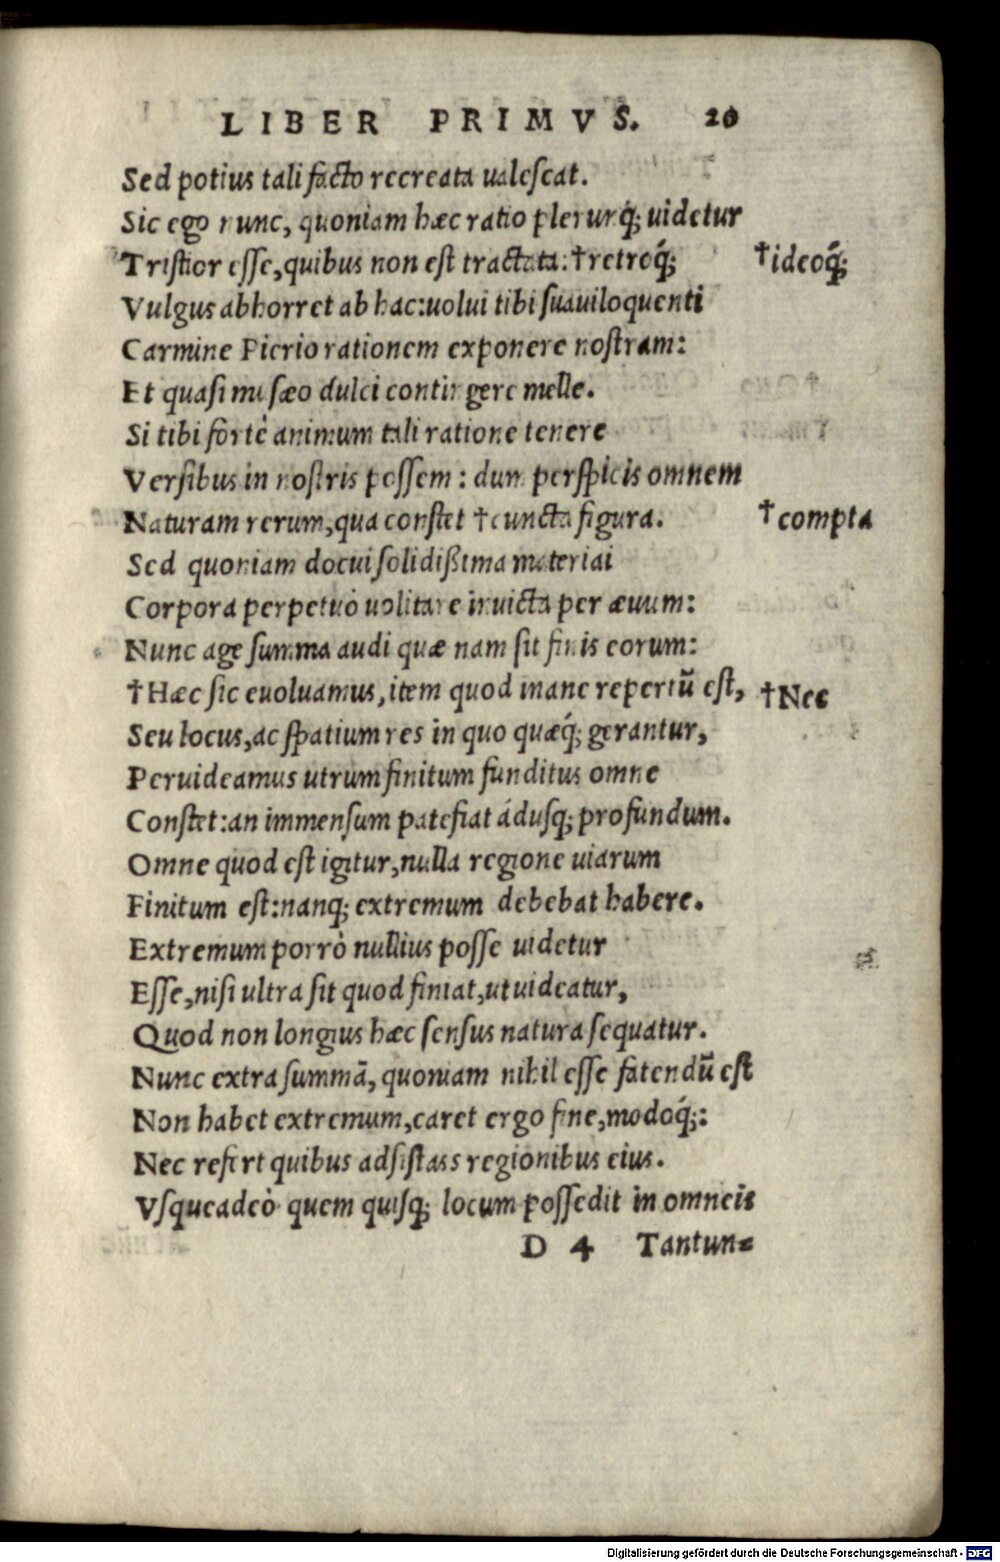 LIBER PRIMVS. 20
Sed potius tali facto recreata ualescat.
Sic ego nunc, quoniam hæc ratio plerunq; uidetur
Tristior esse, quibus non est tractata: †retroq́; †ideoq́;
Vulgus abhorret ab hac: uolui tibi suauiloquenti
Carmine Pierio rationem exponere nostram:
Et quasi musæo dulci contingere melle.
Si tibi fortè animum tali ratione tenere
Versibus in nostris possem: dum perspicis omnem
Naturam rerum, qua constet †cuncta figura. †compta
Sed quoniam docui solidißima materiai
Corpora perpetuò uolitare inuicta per æuum:
Nunc age summa audi quæ nam sit finis eorum:
†Hæc sic euoluamus, item quod inane repertū est, †Nec
Seu locus, ac spatium res in quo quæq́; gerantur,
Peruideamus utrum finitum funditus omne
Constet: an immensum patefiat ádusq; profundum.
Omne quod est igitur, nulla regione uiarum
Finitum est: nanq; extremum debebat habere.
Extremum porrò nullius posse uidetur
Esse, nisi ultra sit quod finiat, ut uideatur,
Quod non longius hæc sensus natura sequatur.
Nunc extra summā, quoniam nihil esse fatendū est
Non habet extremum, caret ergo fine, modoq́;:
Nec refert quibus adsistass regionibus eius.
Vsqueadeò quem quisq; locum possedit in omneis
D 4 Tantun=
Digitalisierung gefördert durch die Deutsche Forschungsgemeinschaft - DFG